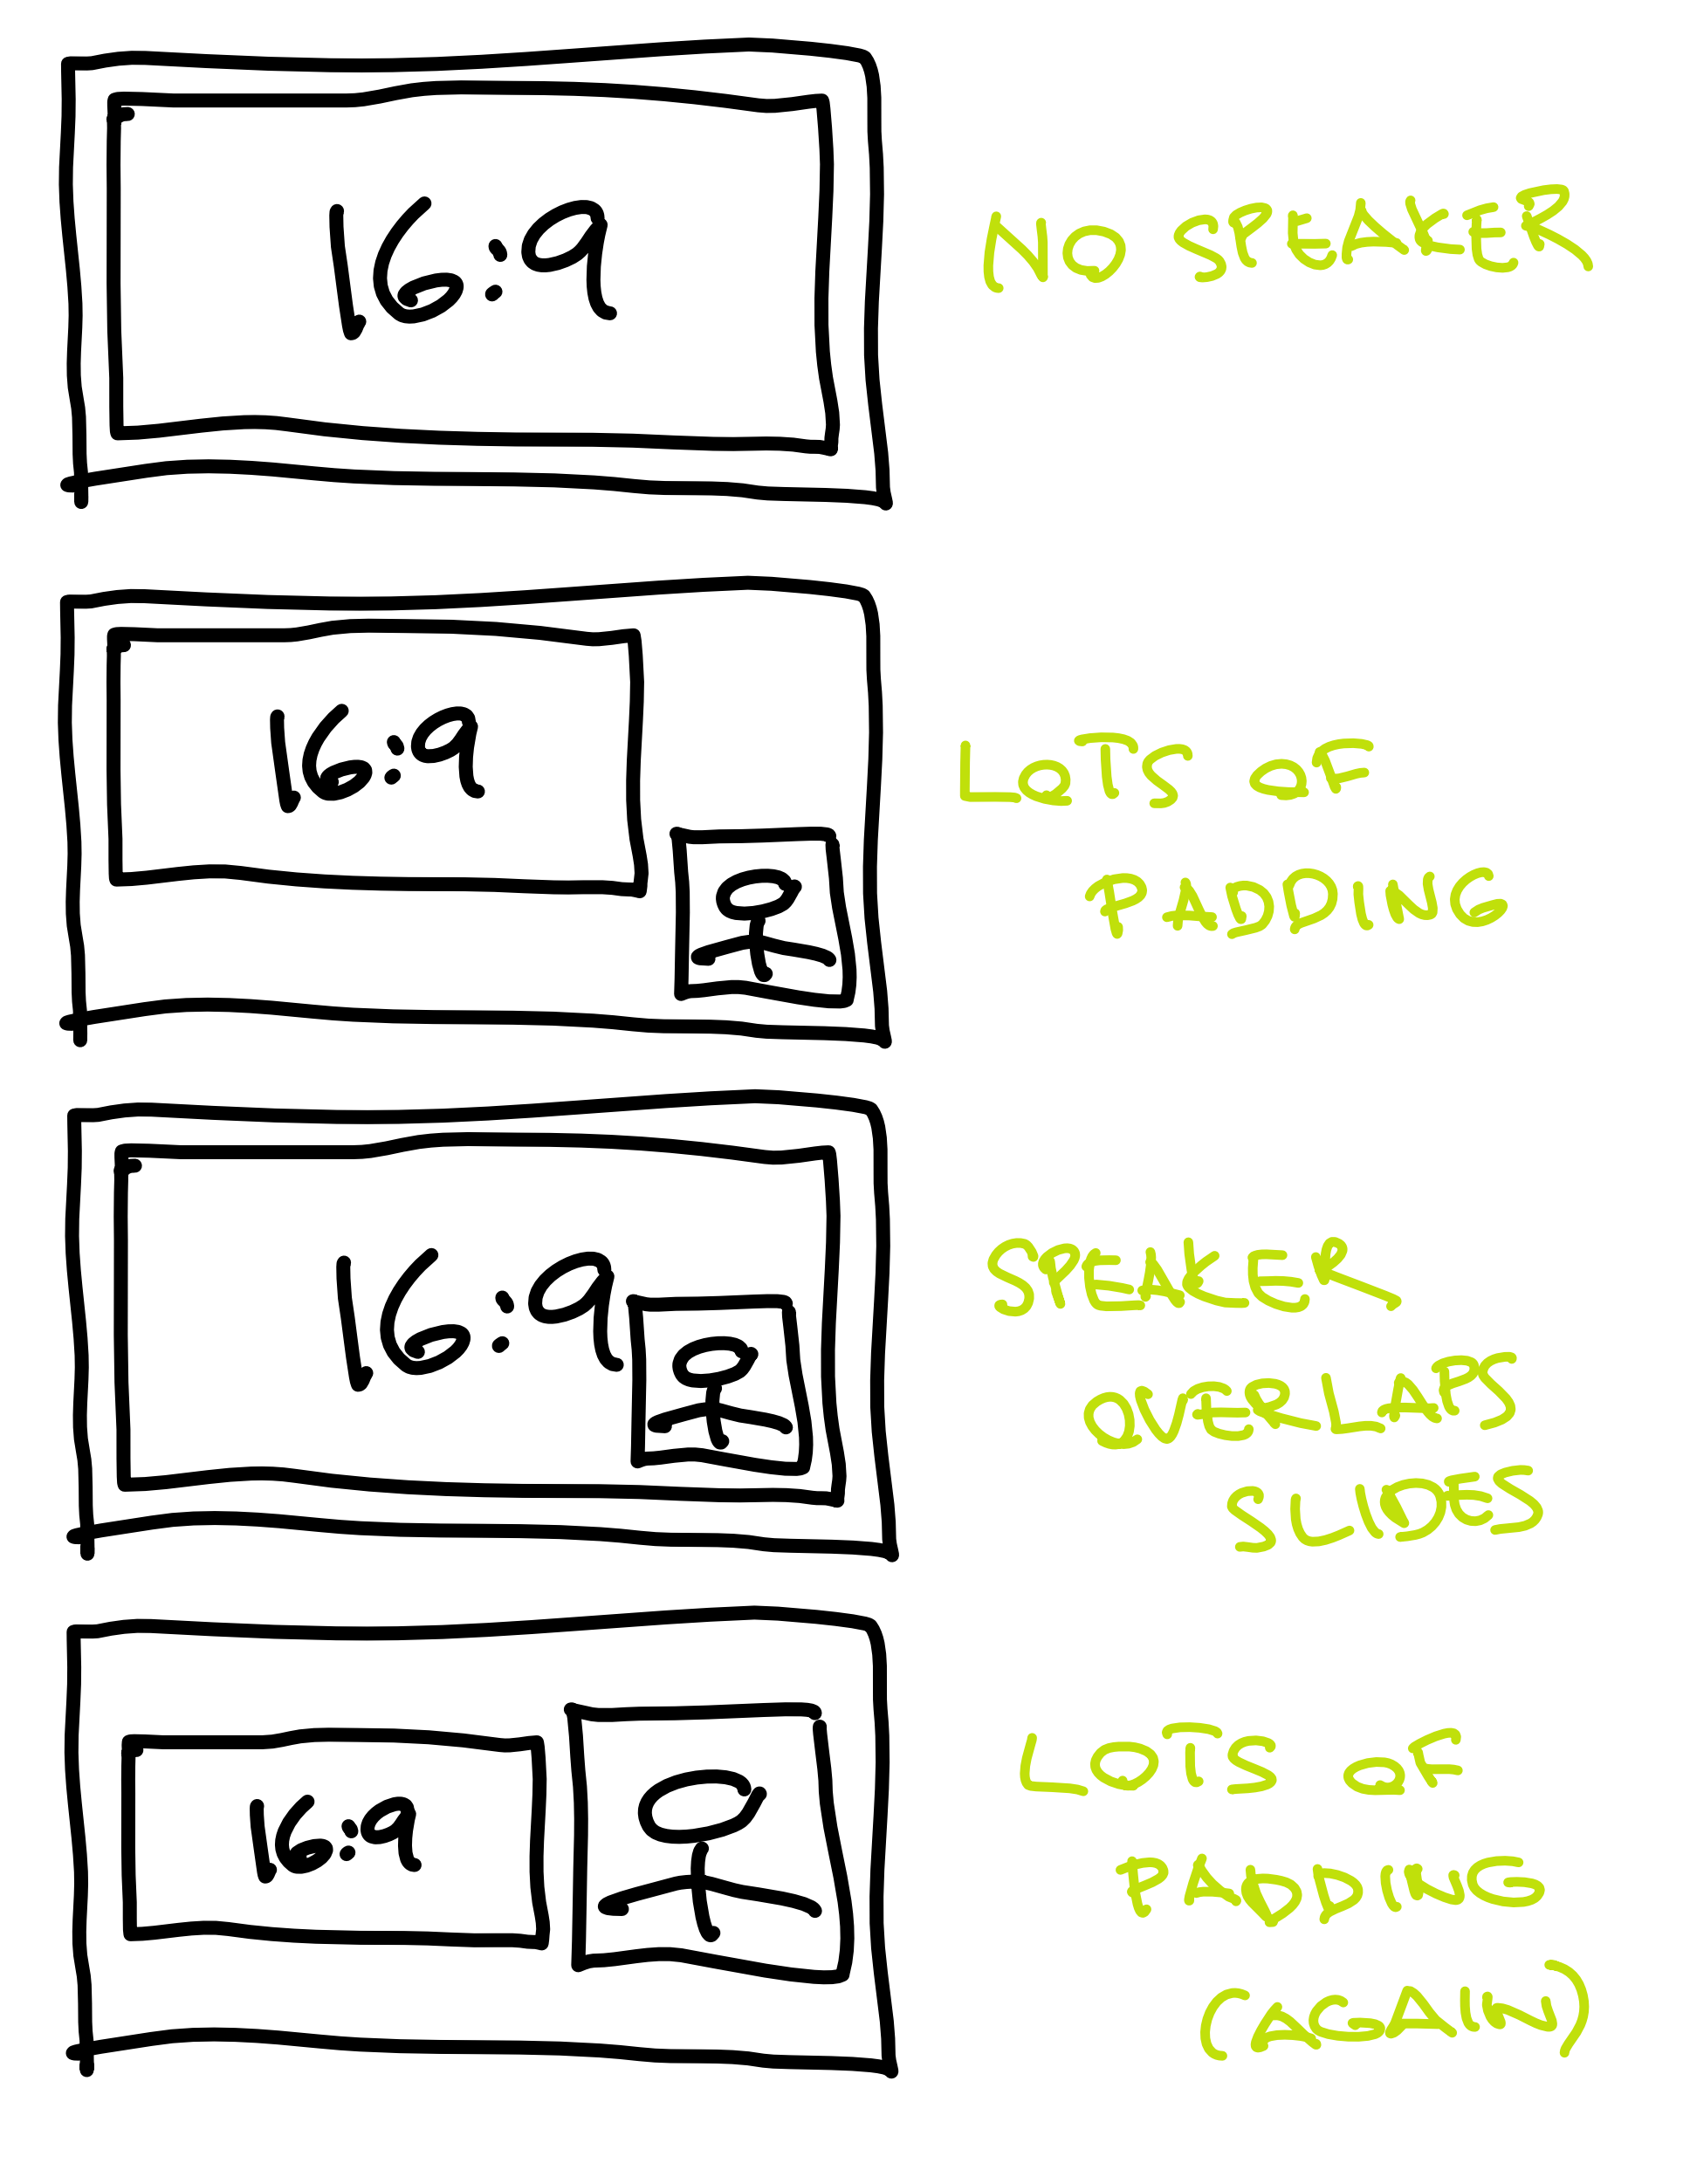 16:9
NO SPEAKER
16:9
LOTS OF
PADDING
16:9
SPEAKER
OVERLAPS
SLIDES
16:9
LOTS OF
PADDING
(AGAIN)